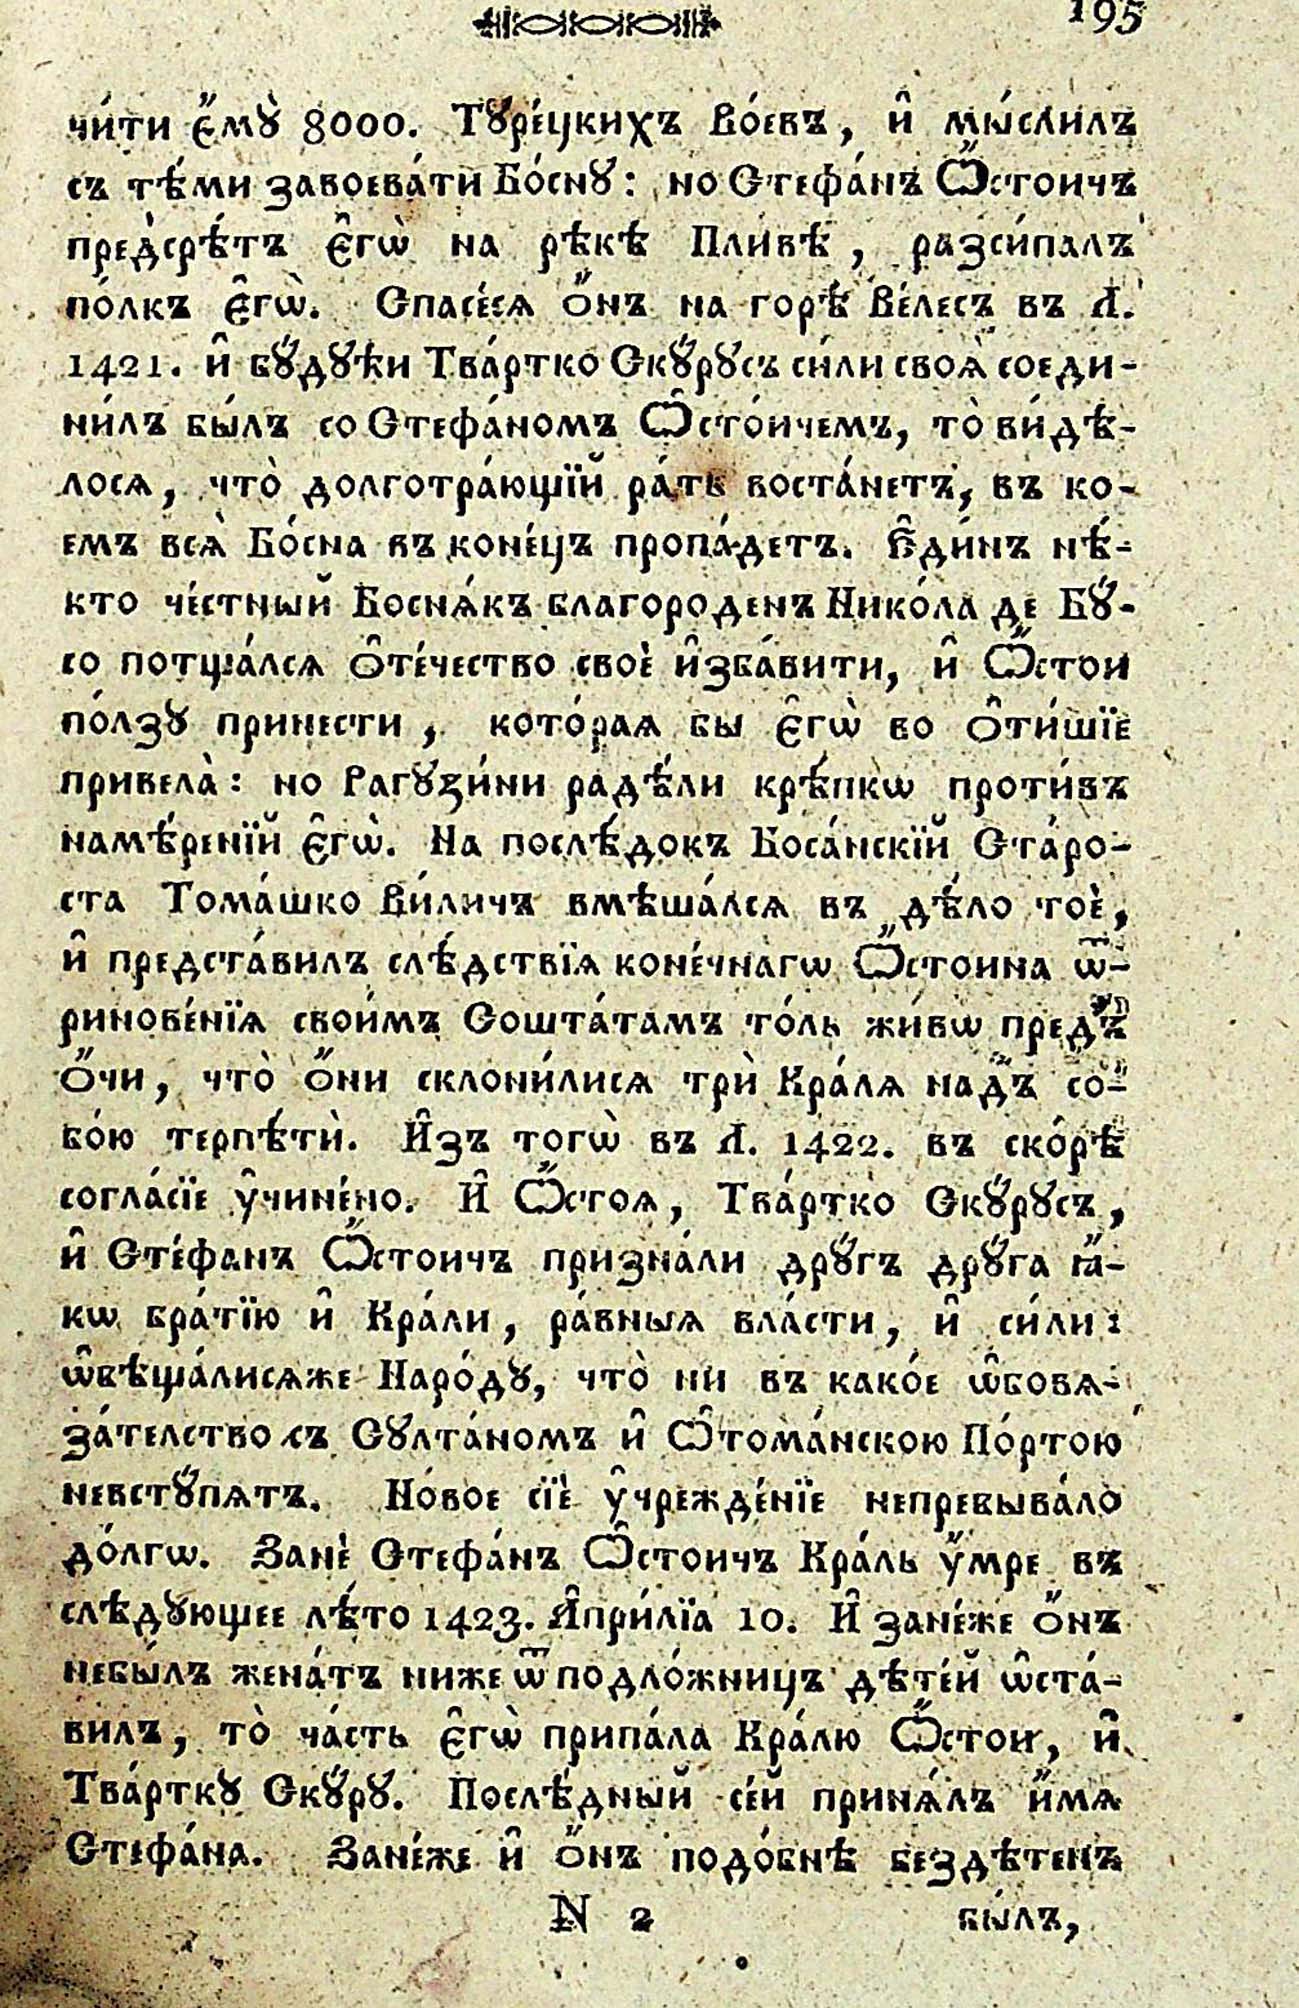 195
чи́ти є҆́мꙋ̀ 8000. Тꙋре́цкихъ Во́евъ, и҆ мы́слилъ
съ тѣ́ми завоева́ти Бо́снꙋ: но Стефа́нъ Ѻ҆́стоичъ
предсрѣ́тъ є҆гѡ̀ на рѣкѣ Пли́вѣ, разси́палъ
по́лкъ є҆гѡ̀. Спасе́сѧ о҆́нъ на горѣ̀ Ве́лесъ въ Л.
1421. и҆ бꙋ́дꙋћи Тва́ртко Скꙋ́рꙋсъ си́ли своѧ̀ соеди-
ни́лъ бы́лъ со Стефа́номъ Ѻ҆сто́ичемъ, то̀ ви́дѣ-
лосѧ, что̀ долготра́ющїй ра́ть воста́нетъ, въ ко-
емъ всѧ̀ Бо́сна въ коне́цъ пропа́детъ. Е҆ди́нъ нѣ́-
кто че́стный Боснѧ́къ благороденъ Нико́ла де Бꙋ́-
со потща́лсѧ о҆те́чество своѐ и҆зба́вити, и҆ Ѻ҆́стои
по́лзꙋ принести, кото́раѧ бы є҆гѡ̀ во о҆ти́шїе
привела̀: но Рагꙋзи́ни радѣ́ли крѣ́пкѡ проти́въ
намѣ́ренїй є҆гѡ̀. На послѣ́докъ Боса́нскїй Ста́ро-
ста Тома́шко Ви́личъ вмѣша́лсѧ въ дѣ́ло тоѐ,
и҆ предста́вилъ слѣ́дствїѧ коне́чнагѡ Ѻ҆́стоина ѿ-
ринове́нїѧ свои́мъ Сошта́тамъ то́ль жи́вѡ предъ
о҆́чи, что̀ о҆́ни склони́лисѧ трѝ Кра́лѧ надъ со-
бо́ю терпѣ́ти. И҆зъ тогѡ̀ въ Л. 1422. въ ско́рѣ
согла́сїе у҆чине́но. И҆ Ѻ҆́стоѧ, Тва́ртко Скꙋ́рꙋсъ,
и҆ Сте́фанъ Ѻ҆́стоичъ призна́ли дрꙋ́гъ дрꙋ́га ꙗ҆́-
кѡ бра́тїю и҆ Кра́ли, ра́вныѧ вла́сти, и҆ си́ли:
ѡ҆бѣща́лисѧже Наро́дꙋ, что̀ ни въ како́е ѡ҆бовѧ-
за́телство съ Сꙋлта́номъ и҆ Ѻ҆тома́нскою По́ртою
невстꙋ́пѧтъ. Но́вое сїѐ у҆чрежде́нїе непребыва́ло
до́лгѡ. Занѐ Стефа́нъ Ѻ҆́стоичъ Кра́ль у҆́мре въ
слѣ́дꙋющее лѣ́то 1423. А҆при́лїа 10. И҆ зане́же о҆́нъ
небы́лъ жена́тъ ниже ѿ подло́жницъ дѣте́й ѡ҆ста́-
вилъ, то̀ ча́сть є҆гѡ̀ припа́ла Кра́лю Ѻ҆́стои, и҆
Тва́рткꙋ Скꙋ́рꙋ. Послѣ́дный се́й принѧ́лъ и҆́мѧ
Стефа́на. Зане́же и҆ о҆́нъ подо́бнѣ бездѣ́тенъ
N 2 бы́лъ,